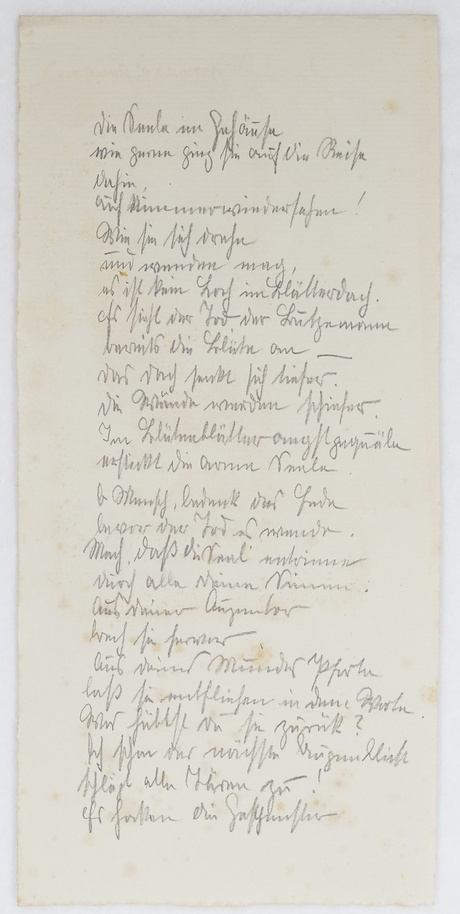 Die Seele im Gehäuse
wie gerne ging sie auf die Reise
dahin,
auf Nimmerwiedersehen!
Wie sie sich drehe
und wenden mag,
es ist kein Loch im Blätterdach.
Es sieht der Tod der Butzemann
bereits die Blüte an —
das Dach senkt sich tiefer.
die Wände werden schiefer.
Im Blütenblätterangstgequäle
erstickt die arme Seele.
O Mensch, bedenk das Ende
bevor der Tod es wende.
Mach, daß die Seel' entrinne
durch alle deine Sinne.
Aus deiner Augen Tor
brech sie hervor
Aus deines Mundes Pforte
laß sie entfliehen in dem Worte.
Was hältst du sie zurück?
Sich schon der nächste Augenblick
schlägt alle Türen zu!
Es hocken die Gespenster